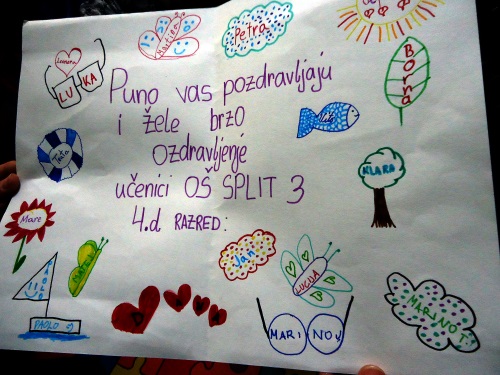 Petra
LU KA
Borna
Puno vas pozdravljaju
i žele brzo
ozdravljenje
učenici OŠ SPLIT 3
4.d RAZRED:
KLARA
Mare
Jan
LUCIJA
PAOLO :)
MARI NO V
MARINO T.